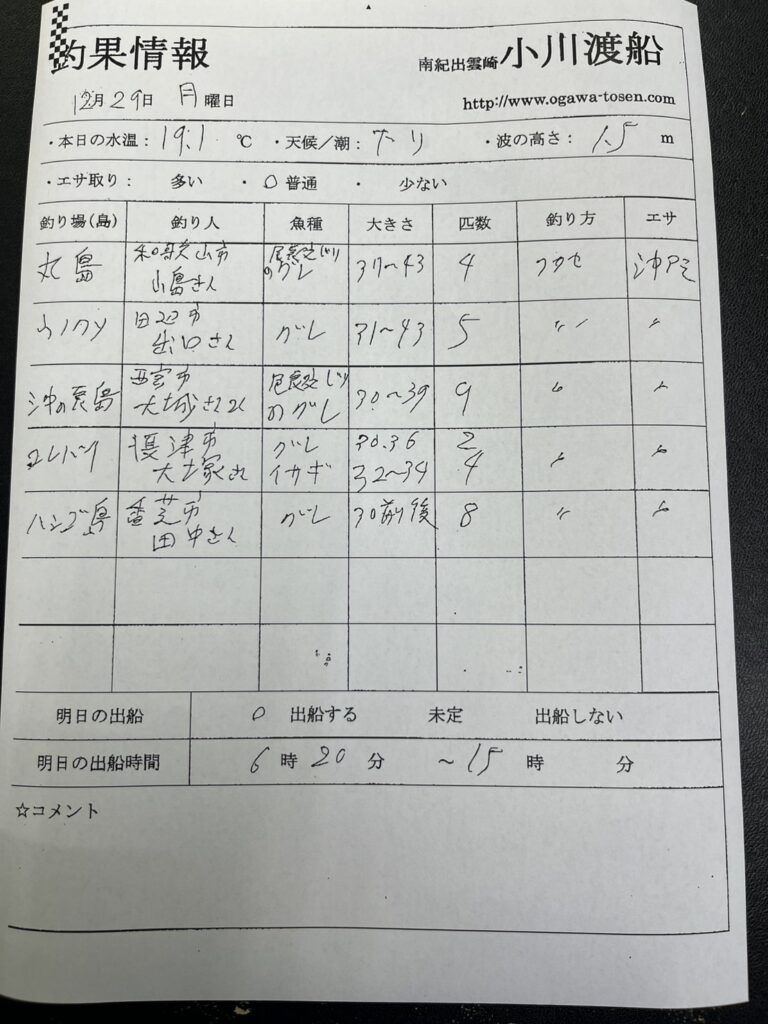 釣果情報
南紀出雲崎 小川渡船
12月29日 月曜日
http://www.ogawa-tosen.com
・本日の水温：19.1 ℃ ・天候／潮： ・波の高さ：1.5 m
・エサ取り： 多い ・ 〇 普通 ・ 少ない
釣り場(島) 釣り人 魚種 大きさ 匹数 釣り方 エサ
丸島 和歌山市 山島さん 尾長まじりのグレ 37〜43 4 フカセ 沖アミ
田辺市 出口さん グレ 31〜43 5 〃 〃
沖の 島 西宮市 大城さん 尾長まじりのグレ 30〜39 9 〃 〃
摂津市 大塚さん グレ 30.36 2
イサギ 32〜34 4 〃 〃
ハンゴ島 田中さん グレ 30前後 8 〃 〃
明日の出船 〇 出船する 未定 出船しない
明日の出船時間 6時20分 〜15時 分
☆コメント